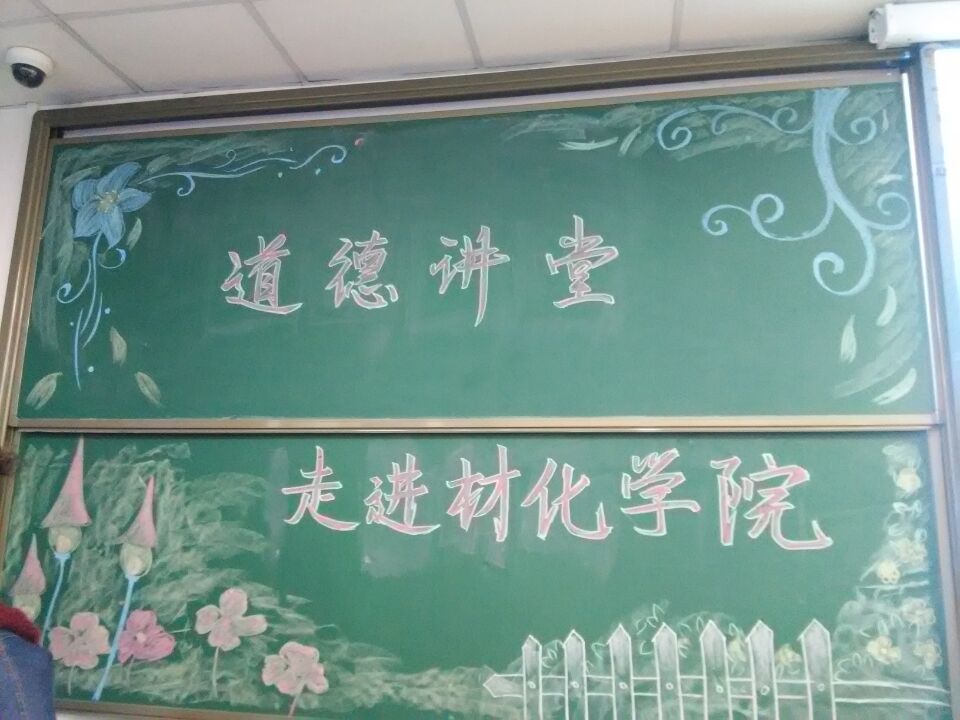 道德讲堂
走进材化学院